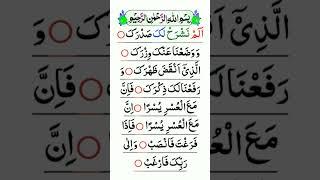 بِسْمِ اللهِ الرَّحْمٰنِ الرَّحِيْمِ
اَلَمْ نَشْرَحْ لَکَ صَدْرَکَ
وَ وَضَعْنَا عَنْکَ وِزْرَکَ
الَّذِیْۤ اَنْقَضَ ظَهْرَکَ وَ
رَفَعْنَا لَکَ ذِکْرَکَ فَاِنَّ
مَعَ الْعُسْرِ یُسْرًا اِنَّ
مَعَ الْعُسْرِ یُسْرًا فَاِذَا
فَرَغْتَ فَانْصَبْ وَاِلٰی
رَبِّکَ فَارْغَبْ